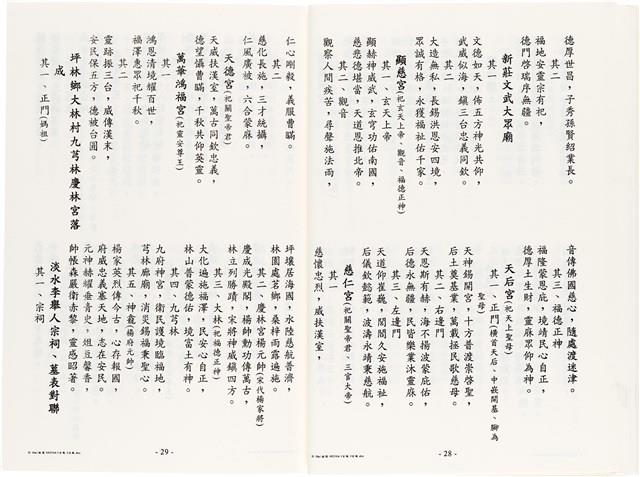 德厚世昌，子秀孫賢紹業長。
福地安靈宗有祀，
德門啓瑞序無疆。
新莊文武大眾廟
其一
文德如天，佈五方神光共仰，
武威似海，鎮三台忠義同欽。
其二
大造無私，長錫洪恩安四境，
眾誠有格，永獲福祉佑千家。
顯慈宮(祀玄天上帝、觀音、福德正神)
其一、玄天上帝
顯赫神威武，玄穹功佑南國，
慈悲德堪當，天道恩推北帝。
其二、觀音
觀察人間疾苦，尋聲施法雨，
音傳佛國慈心，隨處渡迷津。
其三、福德正神
福隆蒙恩庇，境靖民心自正，
德厚土生財，靈庥眾仰為神。
天后宮(祀天上聖母)
其一、正門(橫首天后、中嵌開基、腳為聖母)
天神錫開宮，十方普渡崇啓聖，
后土奠基業，萬載拯民歌慈母。
其二、右邊門
天恩斯有赫，海不揚波蒙庇佑，
后德永無疆，民皆樂業沐靈庥。
其三、左邊門
天道仰崔巍，閭閻久安施福祉，
后儀欽懿範，波濤永靖秉慈航。
慈仁宮(祀關聖帝君、三官大帝)
其一
慈懷忠烈，威扶漢室，
- 28 -
仁心剛毅，義服曹瞞。
其二
慈化長施，三才統攝，
仁風廣被，六合蒙庥。
天德宮(祀關聖帝君)
天威扶漢室，萬古同欽忠義，
德望懾曹瞞，千秋共仰英靈。
萬華鴻福宮(祀靈安尊王)
其一
鴻恩清境耀百世，
福澤惠眾祀千秋。
其二
靈跡振三台，威傳漢末，
安民保五方，德被台圓。
坪林鄉大林村九芎林慶林宮落
成
其一、正門(媽祖)
坪壤居海國，水陸慈航普濟，
林園處茗鄉，桑梓雨露遍施。
其二、慶林宮楊元帥(宋代楊家將)
慶成光殿閣，楊帥勳功傳萬古，
林立列勝蹟，宋將神威鎮四方。
其三、大林(祀福德正神)
大化遍施福澤，民安心自正，
林山普蒙德佑，境富土有神。
其四、九芎林
九府神宮，衛民護境臨福地，
芎林廊廟，消災錫福秉聖心。
其五、神龕(楊府元帥)
楊家英烈傳今古，心存報國，
府威忠義塞天地，志在安民。
元神赫耀垂青史，俎豆馨香，
帥帳森嚴衛赤黎，靈感昭著。
淡水李舉人宗祠、墓表對聯
其一、宗祠
- 29 -